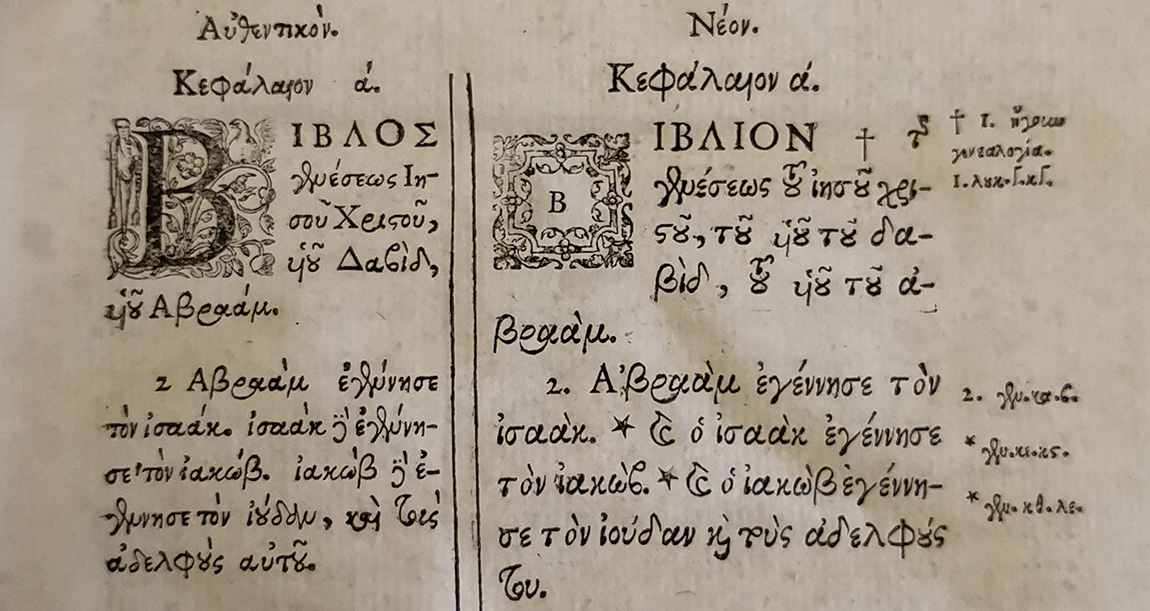 Αὐθεντικόν.
Κεφάλαιον ά.
ΒΙΒΛΟΣ
γενέσεως Ιη-
σοῦ Χριστοῦ,
υἱοῦ Δαβὶδ,
υἱοῦ Αβραάμ.
2 Αβραὰμ ἐγέννησε
τὸν ἰσαάκ. ἰσαὰκ δὲ ἐγέννη-
σε τὸν ἰακώβ. ἰακὼβ δὲ ἐ-
γέννησε τὸν ἰούδαν, καὶ τοὺς
ἀδελφοὺς αὐτοῦ.
Νέον.
Κεφάλαιον ά.
ΒΙΒΛΙΟΝ † τῆς
γενέσεως τοῦ ἰησοῦ χρι-
στοῦ, τοῦ υἱοῦ τοῦ δα-
βὶδ, τοῦ υἱοῦ τοῦ ἀ-
βραὰμ.
2. Ἀβραὰμ ἐγέννησε τὸν
ἰσαὰκ. * καὶ ὁ ἰσαὰκ ἐγέννησε
τὸν ἰακώβ. * καὶ ὁ ἰακὼβ ἐγέννη-
σε τὸν ἰούδαν καὶ τοὺς ἀδελφούς
του.
† Ι. ἤγουν
γενεαλογία.
Ι. λυκ. γ. κγ.
2. γεν. κα. β.
* γεν. κε. κς.
* γεν. κθ. λε.